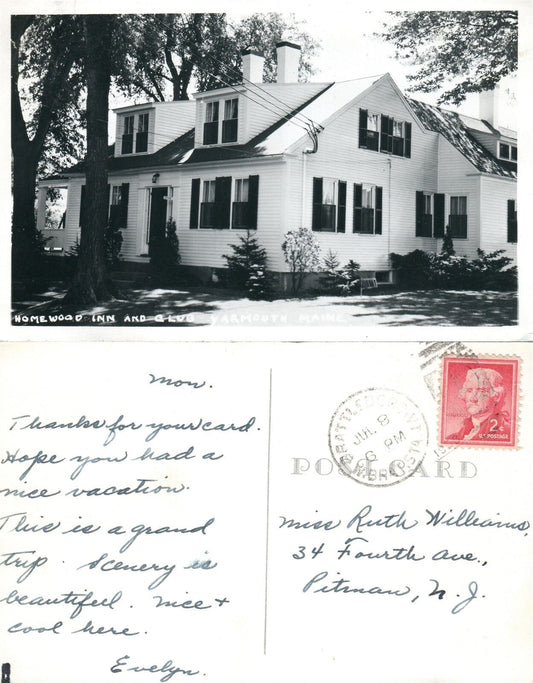 HOMEWOOD INN AND CLUB YARMOUTH MAINE
Mon.
Thanks for your card.
Hope you had a
nice vacation.
This is a grand
trip. Scenery is
beautiful. Nice +
cool here.
Evelyn.
BRATTLEBORO, VT
JUL 8
6 PM
2¢
U.S. POSTAGE
POST CARD
Miss Ruth Williams,
34 Fourth Ave.,
Pitman, N.J.